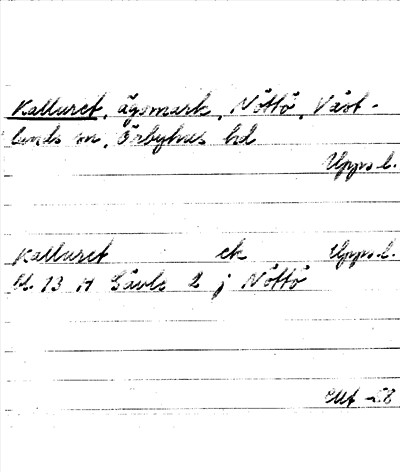 Kalluret, ägomark, Nöttö, Väst-
lands sn, Örbyhus hd
Upps.l.
Kalluret ek Upps.l.
bl. 13 H Gävle 2 j Nöttö